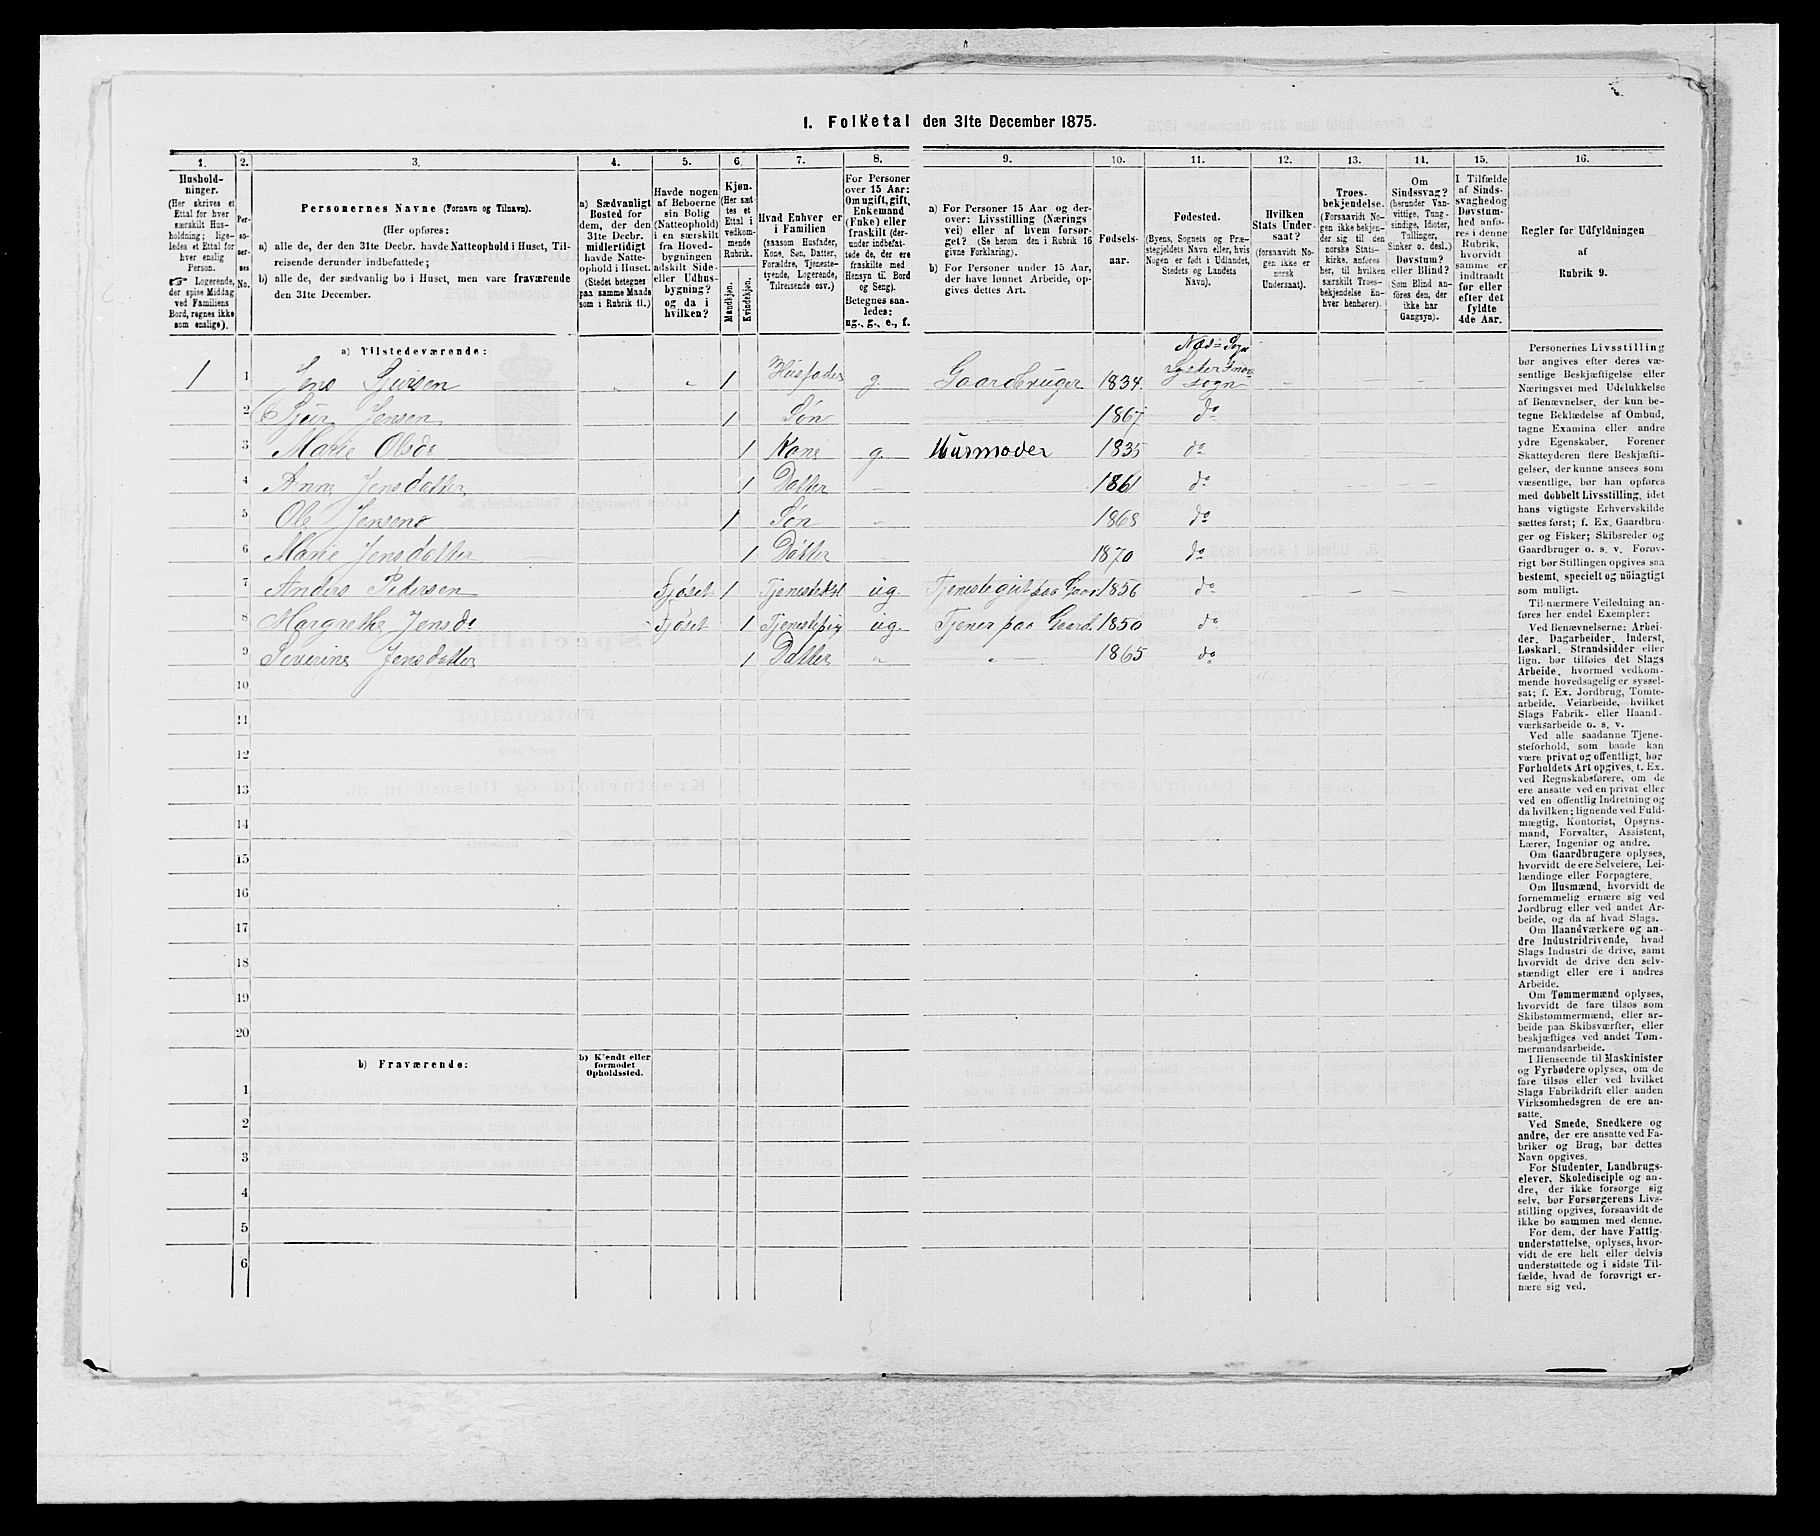 1. Folketal den 31te December 1875.
1. 2. 3. 4. 5. 6. 7. 8. 9. 10. 11. 12. 13. 14. 15. 16.
Hushold-
ninger.
(Her skrives et
Ettal for hver
særskilt Hus-
holdning; lige-
ledes et Ettal for
hver enslig
Person.
☞ Logerende,
der spise Middag
ved Familiens
Bord, regnes ikke
som enslige).
Per-
so-
ner-
nes
No.
Personernes Navne (Fornavn og Tilnavn).
(Her opføres:
a) alle de, der den 31te Decbr. havde Natteophold i Huset, Til-
reisende derunder indbefattede;
b) alle de, der sædvanlig bo i Huset, men vare fraværende
den 31te December.
a) Sædvanligt
Bosted for
dem, der den
31te Decbr.
midlertidigt
havde Natte-
ophold i Huset.
(Stedet betegnes
paa samme Maade
som i Rubrik 11.)
Havde nogen
af Beboerne
sin Bolig
(Natteophold)
i en særskilt
fra Hoved-
bygningen
adskilt Side-
eller Udhus-
bygning?
og da i
hvilken?
Kjøn.
(Her sæt-
tes et
Ettal i
vedkom-
mende
Rubrik.
Mandkjøn.
Kvindekjøn.
Hvad Enhver er
i Familien
(saasom Husfader,
Kone, Søn, Datter,
Forældre, Tjeneste-
tyende, Logerende,
Tilreisende osv.)
For Personer
over 15 Aar:
Om ugift, gift,
Enkemand
(Enke) eller
fraskilt (der-
under indbefat-
tede de, der ere
fraskilte med
Hensyn til Bord
og Seng).
Betegnes saa-
ledes:
ug., g., e., f.
a) For Personer 15 Aar og der-
over: Livsstilling (Nærings
vei) eller af hvem forsør-
get? (Se herom den i Rubrik 16
givne Forklaring).
b) For Personer under 15 Aar,
der have lønnet Arbeide, op-
gives dettes Art.
Fødsels-
aar.
Fødested.
(Byens, Sognets og Præ-
stegjeldets Navn eller, hvis
Nogen er født i Udlandet,
Stedets og Landets
Navn).
Hvilken
Stats Under-
saat?
(forsaavidt No-
gen ikke er
norsk
Undersaat).
Troes-
bekjendelse.
(Forsaavidt No-
gen ikke bekjen-
der sig til den
norske Stats-
kirke, anføres
her, til hvilken
særskilt Troes-
bekjendelse En-
hver henhører).
Om
Sindssvag?
(herunder Van-
vittige, Tung-
sindige, Idioter,
Tullinger,
Sinker o. desl.)
Døvstum?
eller Blind?
(Som Blind an-
føres den, der
ikke har
Gangsyn).
I Tilfælde
af Sinds-
svaghed og
Døvstum-
hed anfø-
res i denne
Rubrik,
hvorvidt
samme er
indtraadt
før eller
efter det
fyldte
4de Aar.
Regler for Udfyldningen
af
Rubrik 9.
a) Tilstedeværende:
1 1 Jens Sjursen 1 Husfader g. Gaardbruger 1834 sogn
2 Sjur Jensen 1 Søn 1867 do
3 Marie Olsdr 1 Kone g. Husmoder 1835 do
4 Anne Jensdatter 1 Datter 1861 do
5 Ole Jensen 1 Søn 1868 do
6 Marie Jensdatter 1 Datter 1870 do
7 Anders Pedersen Fjøset 1 ug. Tjenestegut paa Gaard 1856 do
8 Margrethe Jensdr Fjøset 1 Tjenestepig ug. Tjener paa Gaard 1850 do
9 Severine Jensdatter 1 Datter 1865 do
10
11
12
13
14
15
16
17
18
19
20
b) Fraværende: b) Kjendt eller
formodet
Opholdssted.
1
2
3
4
5
6
Personernes Livsstilling
bør angives efter deres væ-
sentlige Beskjæftigelse eller
Næringsvei med Udelukkelse
af Benævnelser, der kun be-
tegne Beklædelse af Ombud,
tagne Examina eller andre
ydre Egenskaber. Forener
Skatteyderen flere Beskjæfti-
gelser, der kunne ansees som
væsentlige, bør han opføres
med dobbelt Livsstilling, idet
hans vigtigste Erhvervskilde
sættes først; f. Ex. Gaardbru-
ger og Fisker; Skibsreder og
Gaardbruger o. s. v. Forøv-
rigt bør Stillingen opgives saa
bestemt, specielt og nöiagtigt
som muligt.
Til nærmere Veiledning an-
føres her endel Exempler:
Ved Benævnelserne: Arbei-
der, Dagarbeider, Inderst,
Løskarl, Strandsidder eller
lign. bør tilføies det Slags
Arbeide, hvormed vedkom-
mende hovedsagelig er syssel-
sat; f. Ex. Jordbrug, Tomte-
arbeide, Veiarbeide, hvilket
Slags Fabrik- eller Haand-
værksarbeide o. s. v.
Ved alle saadanne Tjene-
steforhold, som baade kan
være privat og offentligt, bør
Forholdets Art opgives, t. Ex.
ved Regnskabsførere, om de
ere ansatte ved en privat eller
ved en offentlig Indretning og
da hvilken; lignende ved Fuld-
mægtig, Kontorist, Opsyns-
mand, Forvalter, Assistent,
Lærer, Ingeniør og andre.
Om Gaardbrugere oplyses,
hvorvidt de ere Selveiere, Lei-
lændinge eller Forpagtere.
Om Husmænd, hvorvidt de
fornemmelig ernære sig ved
Jordbrug eller ved andet Ar-
beide, og da af hvad Slags.
Om Haandværkere og an-
dre Industridrivende, hvad
Slags Industri de drive, samt
hvorvidt de drive den selv-
stændigt eller ere i andres
Arbeide.
Om Tømmermænd oplyses,
hvorvidt de fare tilsøs som
Skibstømmermænd, eller ar-
beide paa Skibsværfter, eller
beskjæftiges ved andet Tøm-
mermandsarbeide.
I Henseende til Maskinister
og Fyrbødere oplyses, om de
fare tilsøs eller ved hvilket
Slags Fabrikdrift eller anden
Virksomhedsgren de ere an-
satte.
Ved Smede, Snedkere og
andre, der ere ansatte ved Fa-
briker og Brug, bør dettes
Navn opgives.
For Studenter, Landbrugs-
elever, Skoledisciple og an-
dre, der ikke forsørge sig
selv, bør Forsørgerens Livs-
stilling opgives, forsaavidt de
ikke bo sammen med denne.
For dem, der have Fattig-
understøttelse, oplyses, hvor-
vidt de ere helt eller delvis
understøttede og i sidste Til-
fælde, hvad de forøvrigt er-
nære sig ved.